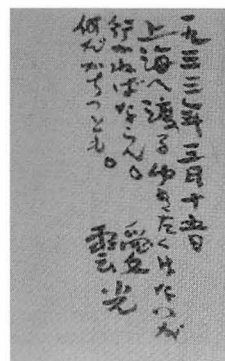 一九三三年五月十五日
上海へ渡るゆきたくはないが
行かねばならん。
何だかちつとも。
愛
雲光